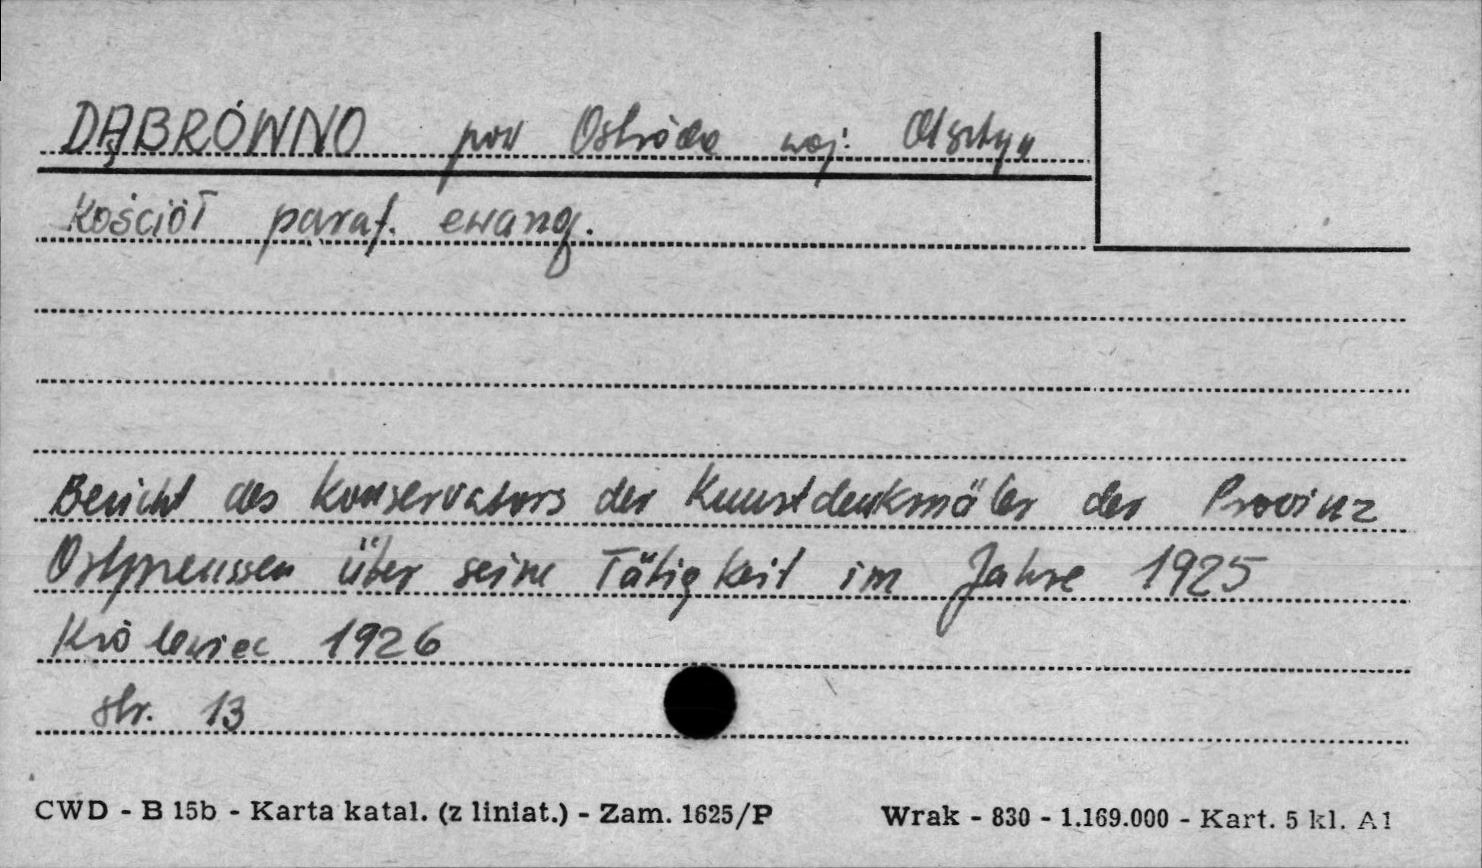 DĄBRÓWNO pow Ostróda woj: Olsztyn
Kościół paraf. ewang.
Bericht des Konservators der Kunstdenkmäler der Provinz
Ostpreussen über seine Tätigkeit im Jahre 1925
Królewiec 1926
str. 13
CWD - B 15b - Karta katal. (z liniat.) - Zam. 1625/P Wrak - 830 - 1.169.000 - Kart. 5 kl. A1